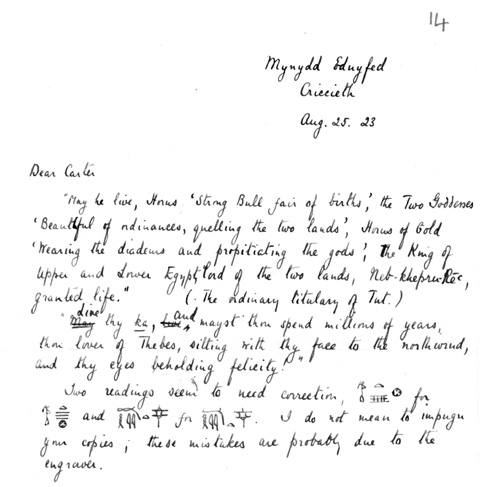 14
Mynydd Ednyfed
Criccieth
Aug. 25. 23
Dear Carter
"May he live, Horus 'Strong Bull fair of births', the Two Goddesses
'Beautiful of ordinances, quelling the two lands', Horus of Gold
'Wearing the diadems and propitiating the gods', the King of
Upper and Lower Egypt, lord of the two lands, Neb-khepru-Rēc,
granted life." (. The ordinary titulary of Tut.)
" thy ka, and mayst thou spend millions of years,
thou lover of Thebes, sitting with thy face to the northwind,
and thy eyes beholding felicity."
Two readings seem to need correction, for
and for . I do not mean to impugn
your copies ; these mistakes are probably due to the
engraver.